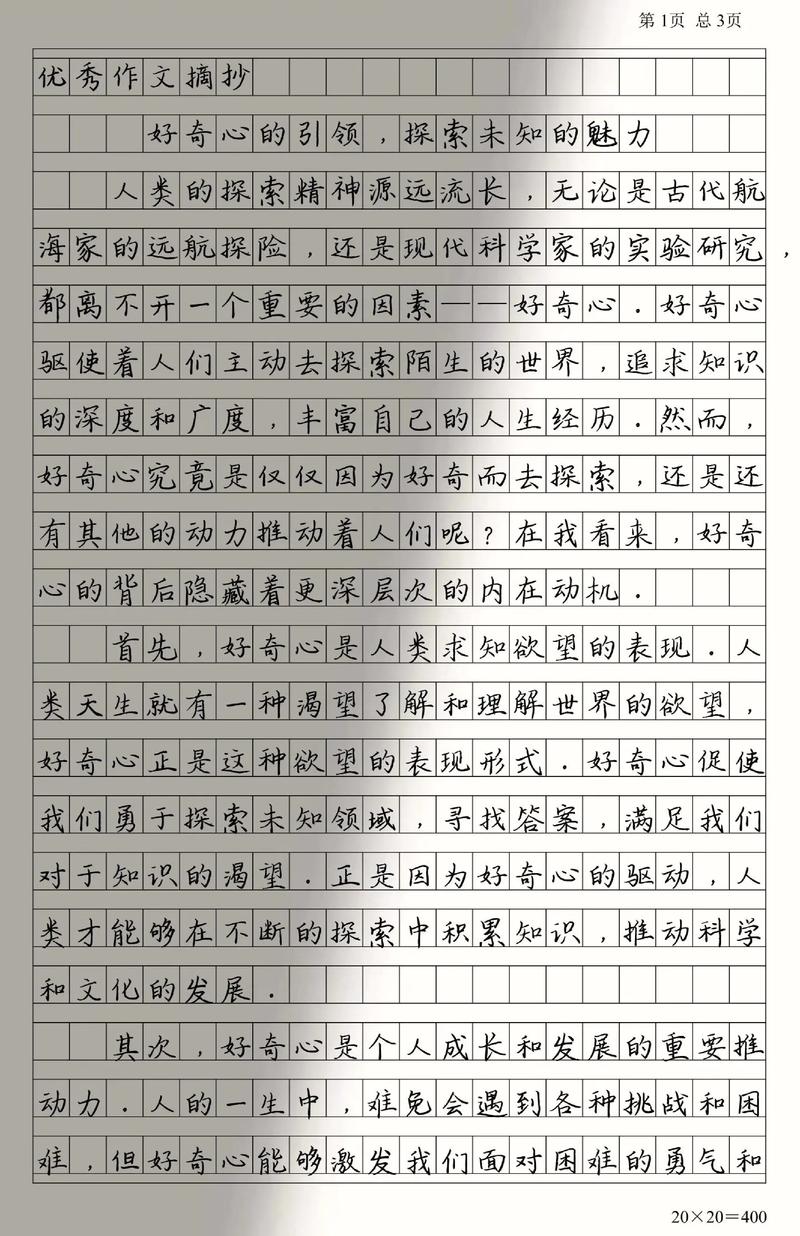 第 1页 总 3页
优秀作文摘抄
好奇心的引领，探索未知的魅力
人类的探索精神源远流长，无论是古代航
海家的远航探险，还是现代科学家的实验研究，
都离不开一个重要的因素——好奇心．好奇心
驱使着人们主动去探索陌生的世界，追求知识
的深度和广度，丰富自己的人生经历．然而，
好奇心究竟是仅仅因为好奇而去探索，还是还
有其他的动力推动着人们呢？在我看来，好奇
心的背后隐藏着更深层次的内在动机．
首先，好奇心是人类求知欲望的表现．人
类天生就有一种渴望了解和理解世界的欲望，
好奇心正是这种欲望的表现形式．好奇心促使
我们勇于探索未知领域，寻找答案，满足我们
对于知识的渴望．正是因为好奇心的驱动，人
类才能够在不断的探索中积累知识，推动科学
和文化的发展．
其次，好奇心是个人成长和发展的重要推
动力．人的一生中，难免会遇到各种挑战和困
难，但好奇心能够激发我们面对困难的勇气和
20×20＝400